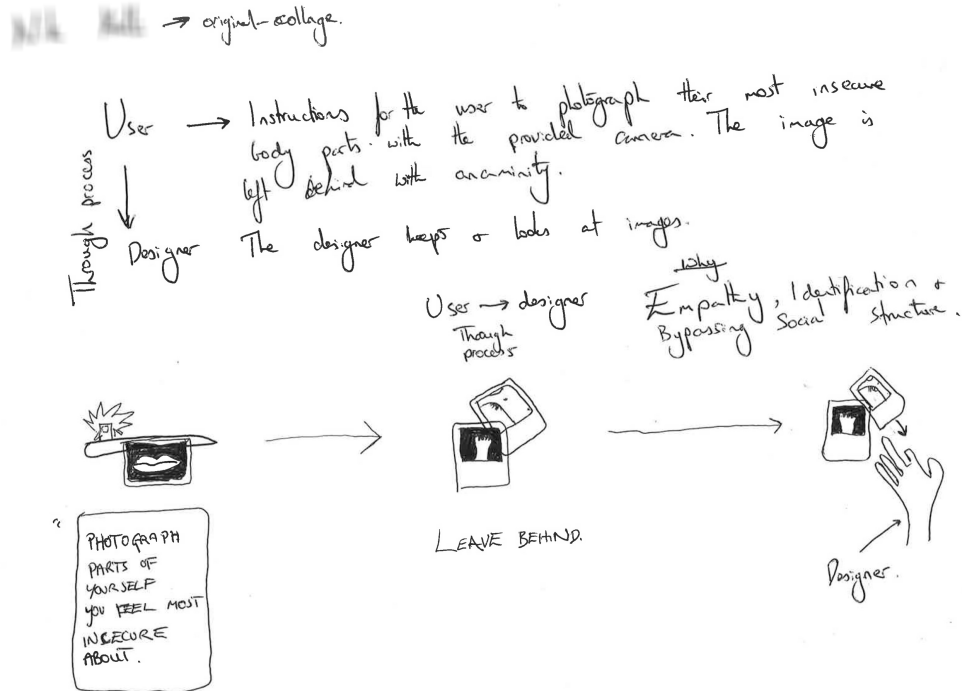 → original-collage.
User → Instructions for the user to photograph their most insecure
body parts. with the provided camera. The image is
left behind with anaminity.
Through process
Designer The designer keeps & looks at images.
User → designer
Though
process
Why
Empathy, Identification &
Bypassing Social Structure.
PHOTOGRAPH
PARTS OF
YOURSELF
YOU FEEL MOST
INSECURE
ABOUT.
LEAVE BEHIND.
Designer.